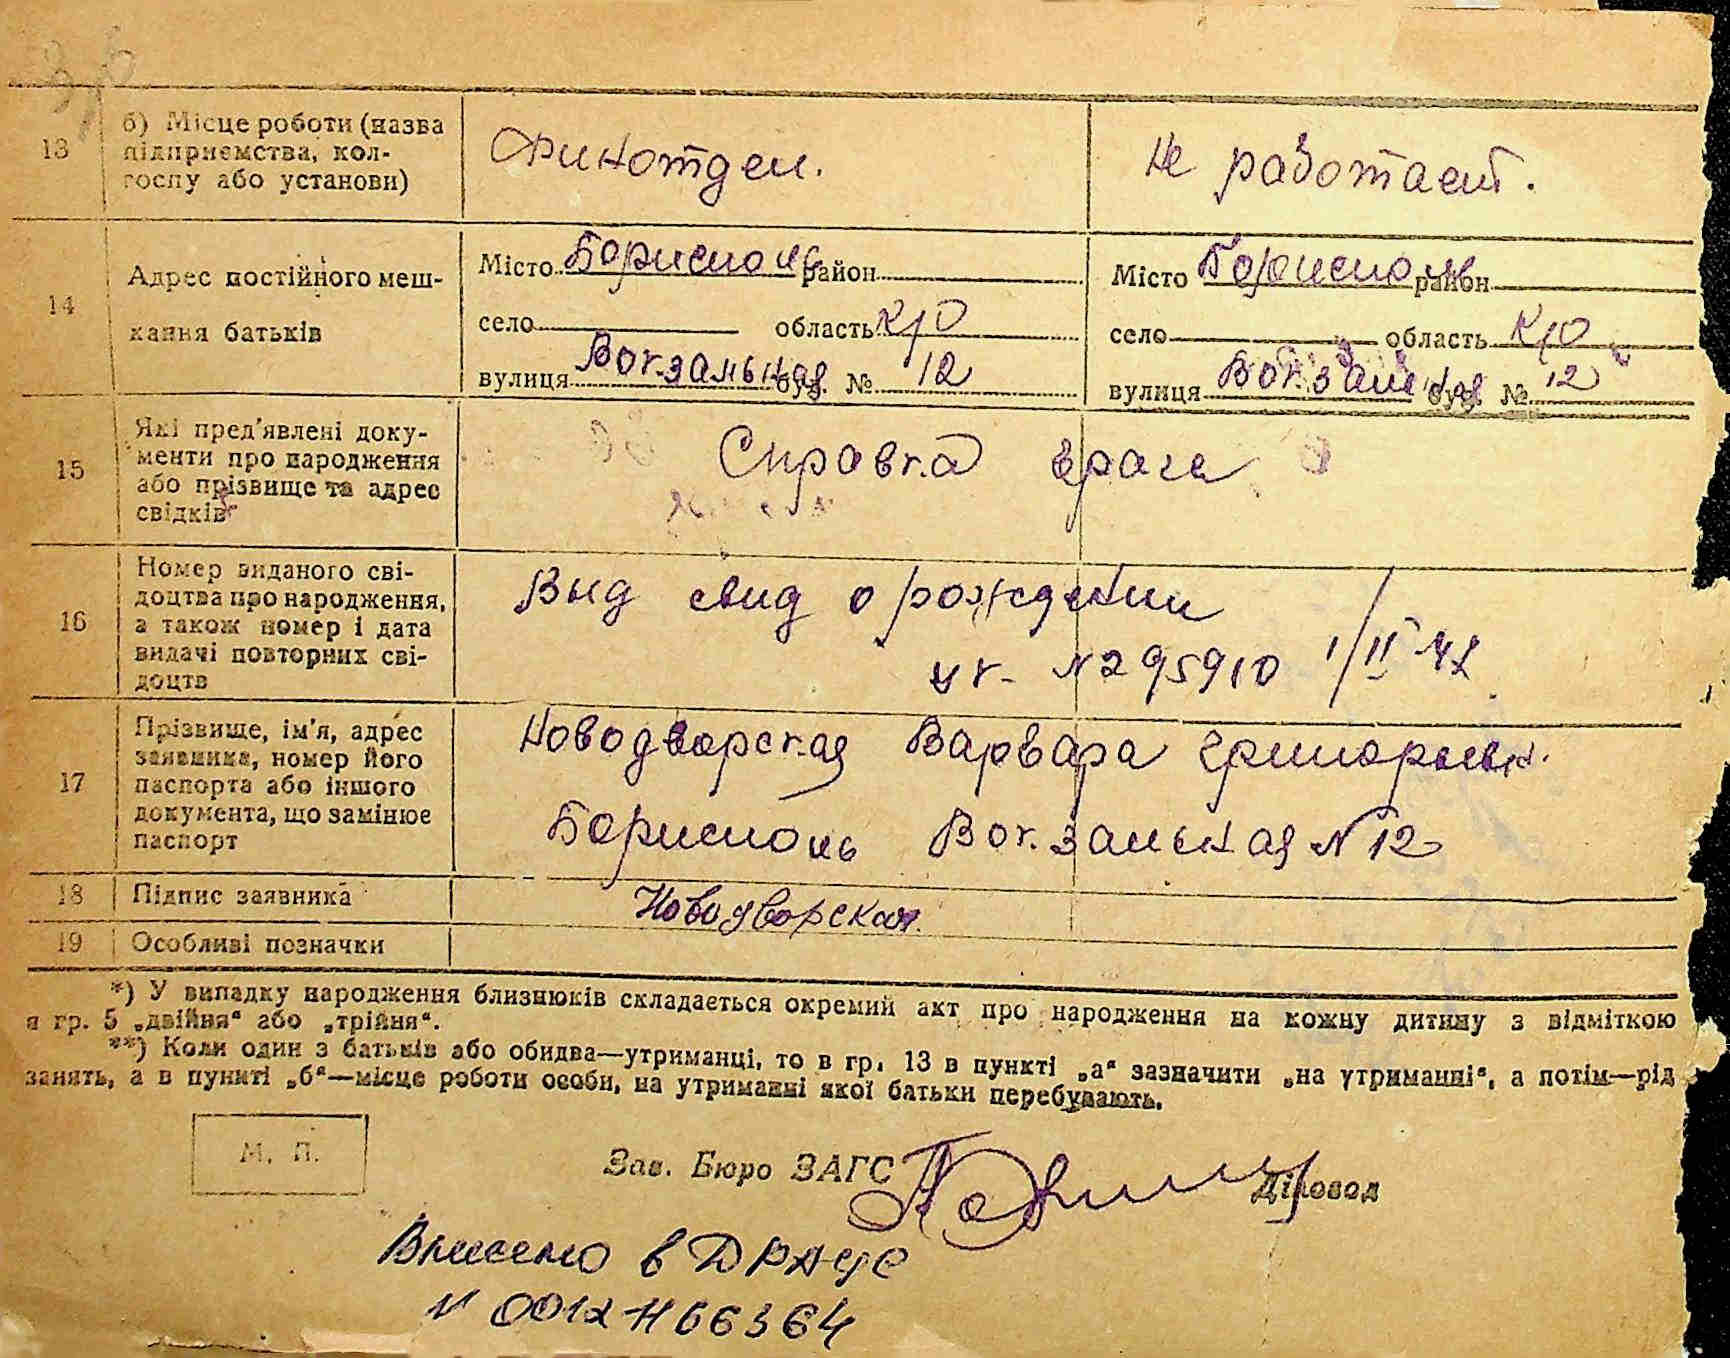 13
б) Місце роботи (назва
підприємства, кол-
госпу або установи)
Финотдел.
Не работает.
14
Адрес постійного меш-
кання батьків
Місто Борисполь район
село область К/О
вулиця Вокзальная буд. № 12
Місто Борисполь район
село область К/О
вулиця Вокзальная буд. № 12
15
Які пред'явлені доку-
менти про народження
або прізвище та адрес
свідків
Справка врача
16
Номер виданого сві-
доцтва про народження,
а також номер і дата
видачі повторних сві-
доцтв
Выд свид о рождении
N 295910 1/II-42
17
Прізвище, ім'я, адрес
заявника, номер його
паспорта або іншого
документа, що замінює
паспорт
Новодворская Варвара Григорьевн.
Борисполь Вокзальная N 12
18
Підпис заявника
Новодворская
19
Особливі позначки
*) У випадку народження близнюків складається окремий акт про народження на кожну дитину з відміткою
в гр. 5 „двійня“ або „трійня“.
**) Коли один з батьків або обидва—утриманці, то в гр. 13 в пункті „а“ зазначити „на утриманні“, а потім—рід
занять, а в пункті „б“—місце роботи особи, на утриманні якої батьки перебувають.
М. П.
Зав. Бюро ЗАГС
Діловод
Внесено в ДРАЦС
N 0012466364